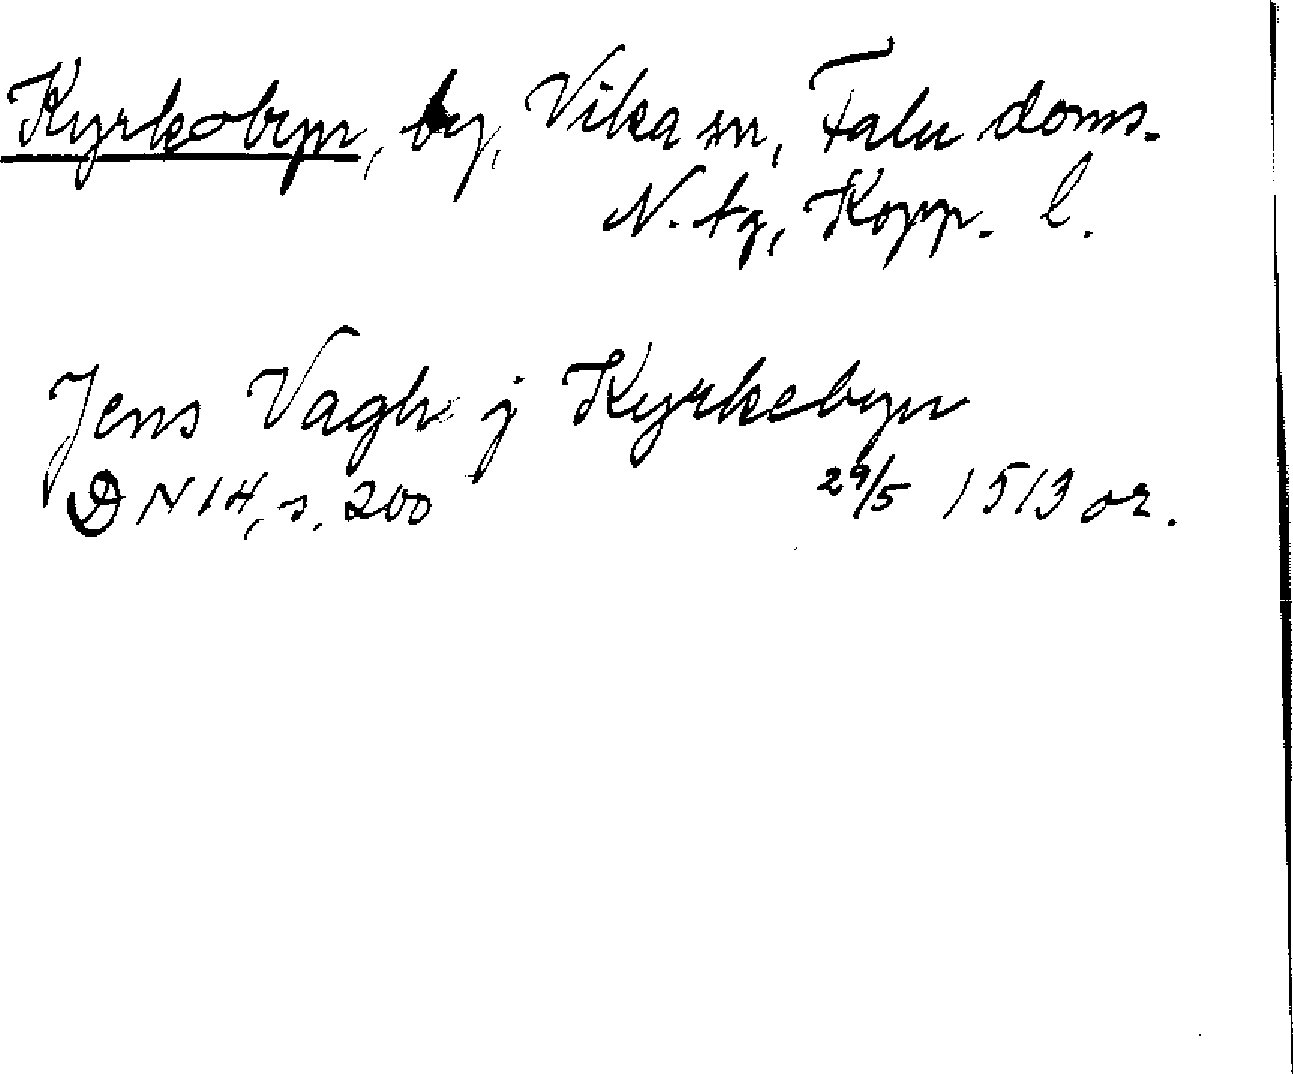 Kyrkobyn, by, Vika sn, Falu doms.
N. tg, Kopp. l.
Jens Vagh j Kyrkebyn
DN 14, s. 200 29/5 1513 or.